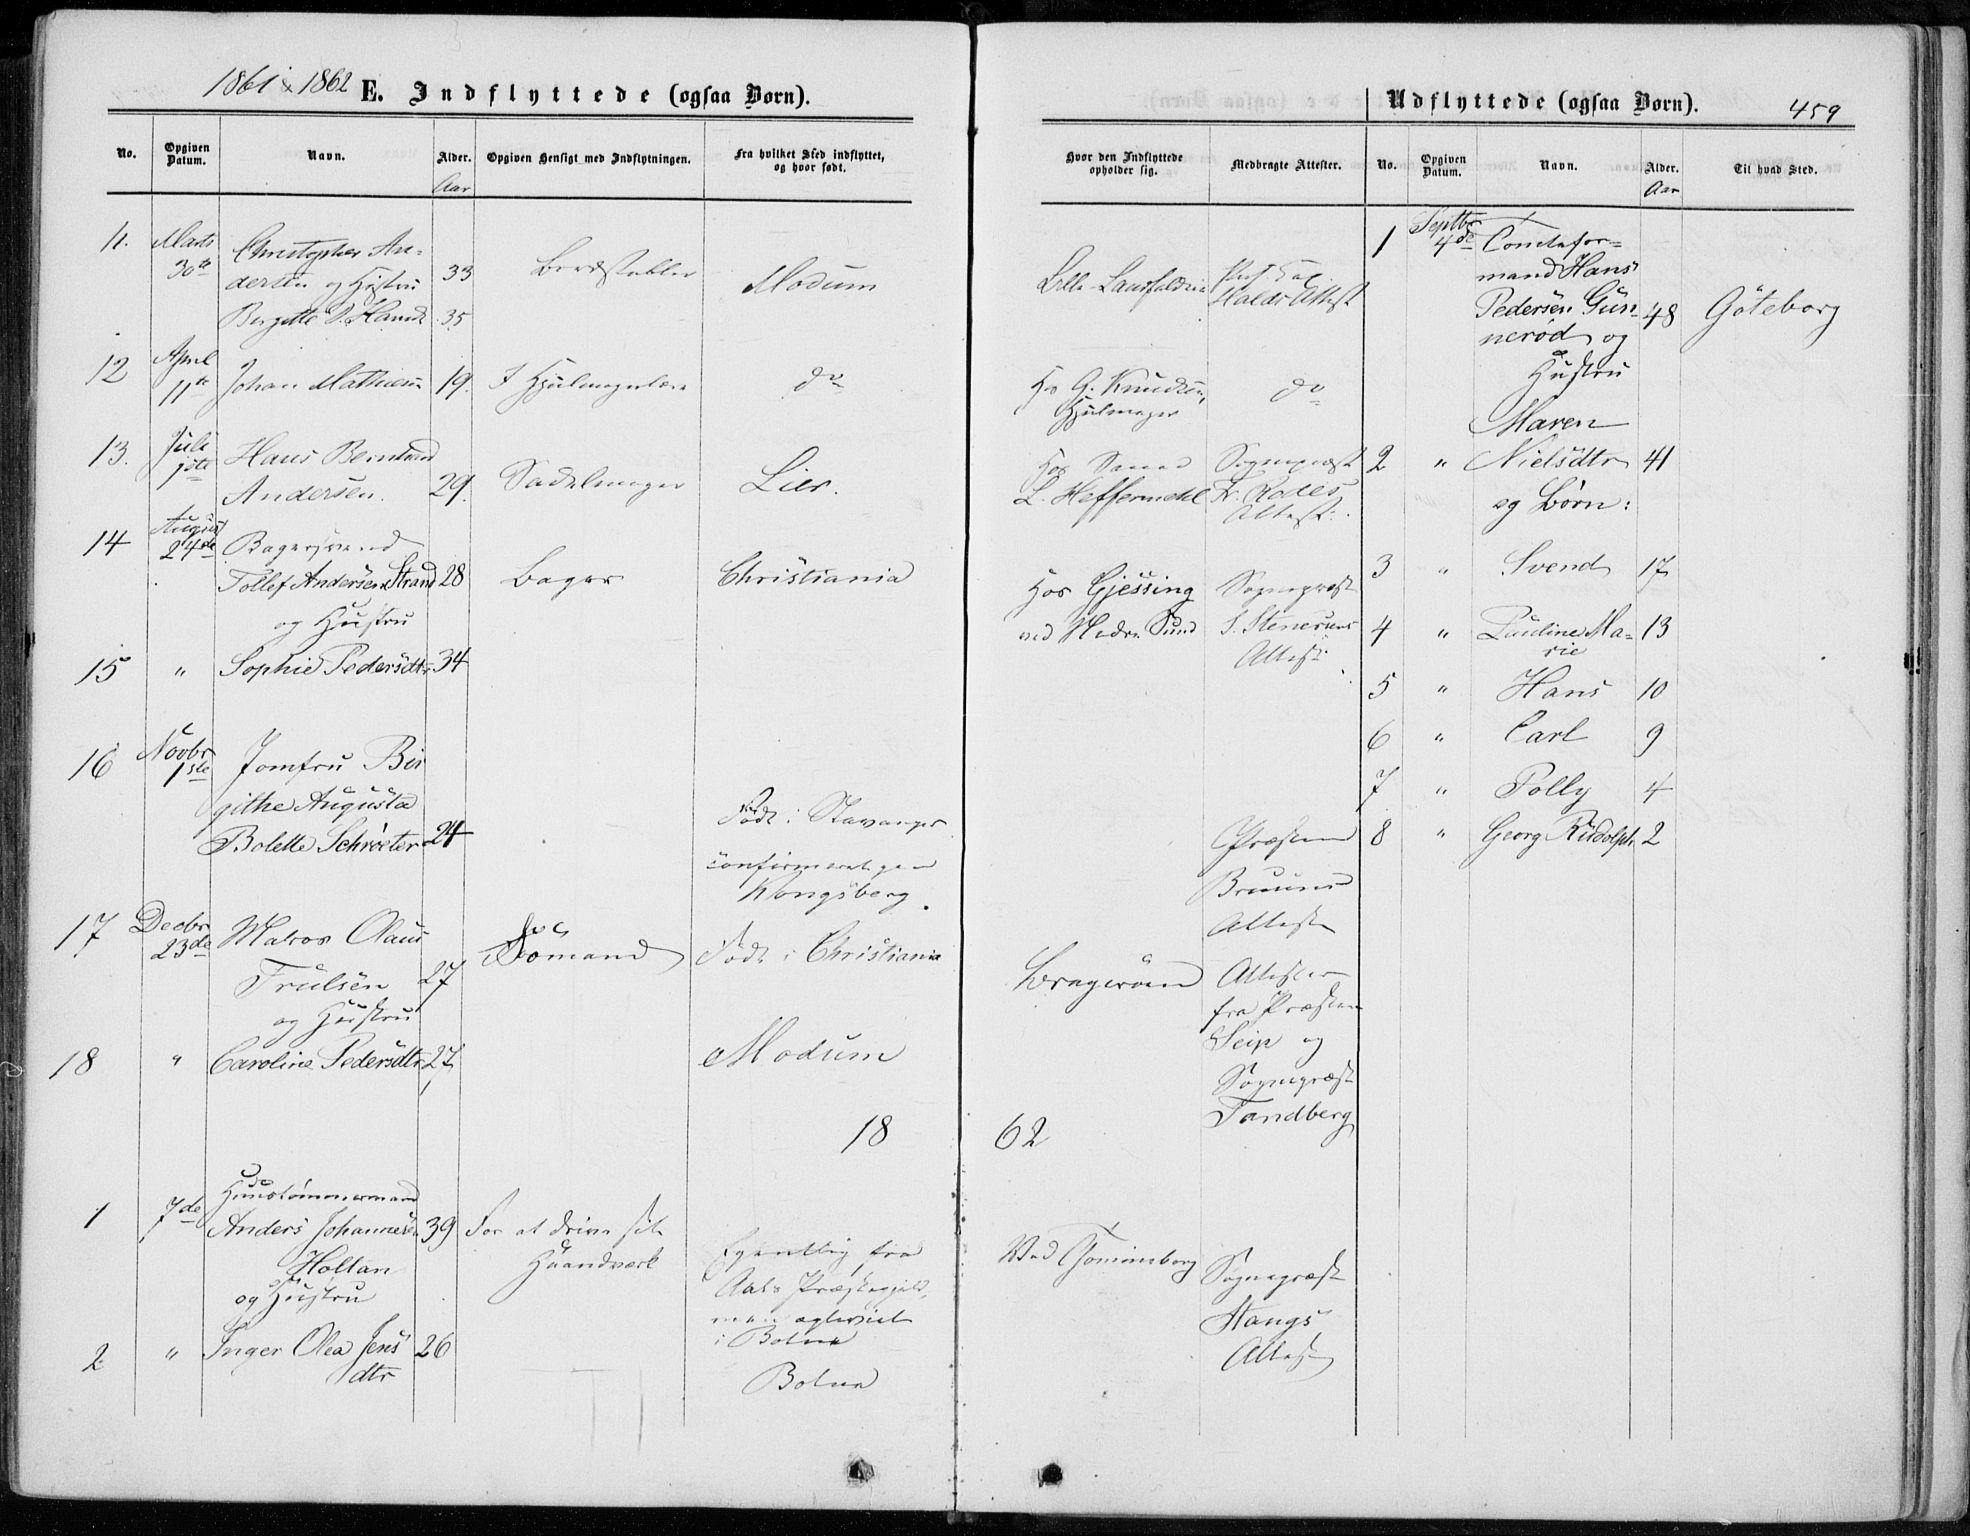 1861 & 1862 E. Indflyttede (ogsaa Børn).
No.
Opgiven Datum.
Navn.
Alder.
Aar
Opgiven Hensigt med Indflytningen.
Fra hvilket Sted indflyttet, og hvor født.
11. Marts 30te
Christopher An-
dersen og Hustru 33
Birgitte 35
Modum
12 April 11te Johan Mathiesen 19. I Hjulmagerlære do
13. Juli 1ste
Hans Berntsen
Andersen. 29. Sadelmager Lier.
14 August 24de
Bagersvend
Tollef Andersen Strand 28 Bager Christiania
og Hustru
15 " Sophie Pedersdtr 34
16 Novbr 1ste
Jomfru Bir
githe Augusta
Bolette Schrøter 24
Født i Stavanger
confirmeret paa
Kongsberg.
17 Decbr 23de
Matros Olaus
Trulsen 27 Sømand Født i Christiania
og Hustru
18 " Caroline Pedersdtr 27 Modum
18
1 7de
Huustømmermand
Anders Johannesen 39 For at drive sit
Holtan Haandværk
og Hustru
Egentlig fra
Præstegjeld,
men
i Botne
2. " Inger Olea Jens 26
dtr
Botne
Udflyttede (ogsaa Børn). 459
Hvor den Indflyttede opholder sig.
Medbragte Attester.
No.
Opgiven Datum.
Navn.
Alder.
Aar
Til hvad Sted.
Attest
Hos G. Knudsen,
Hjulmager
do
Hos
L. Heffermehl
Sognepræst
Attest.
Hos Gjessing
ved Sund
Sognepræst
S. Stenersens
Attest.
Præsten
Bruuns
Attest
Bragerøen
Attester
fra Præsten
Seip og
Sognepræst
Tandberg
62
Ved Tømmeborg
Sognepræst
Stangs
Attest
1 Septbr 4de
mand Hans
Pedersen Gun-
nerød og 48 Göteborg
Hustru
Maren
2 " Nielsdtr 41
og Børn:
3 " Svend 17
4 " Pauline Ma- 13
rie
5 " Hans 10
6 " Carl 9
7 " Polly 4
8 " Georg Rudolph 2